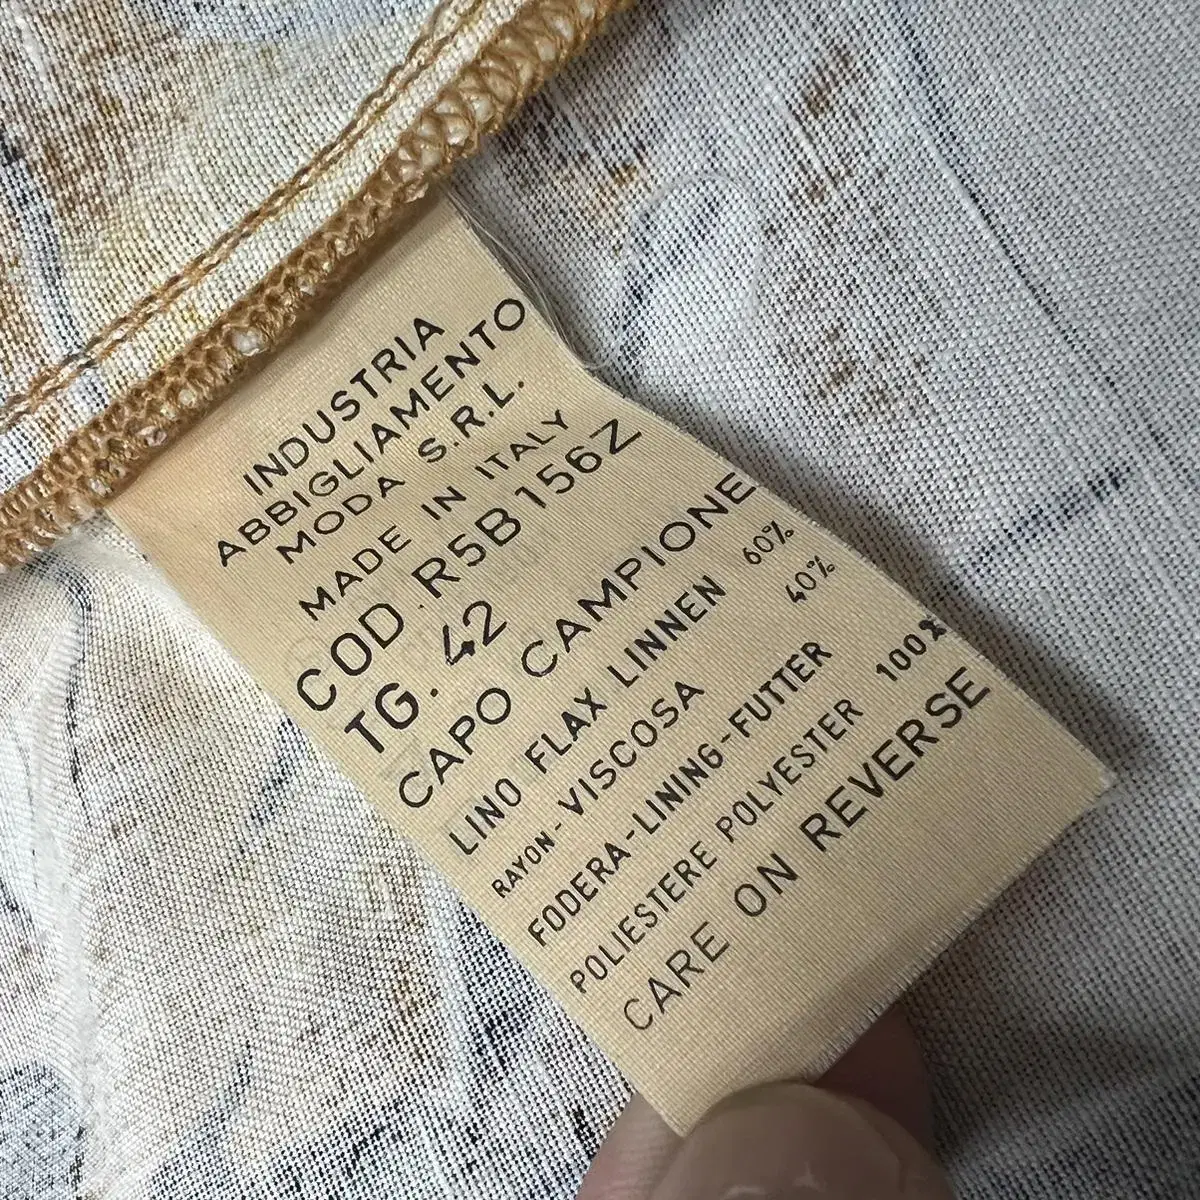 INDUSTRIA
ABBIGLIAMENTO
MODA S.R.L.
MADE IN ITALY
COD.R5B156Z
TG. 42
CAPO CAMPIONE
LINO FLAX LINNEN 60%
RAYON-VISCOSA 40%
FODERA-LINING-FUTTER
POLIESTERE POLYESTER 100%
CARE ON REVERSE